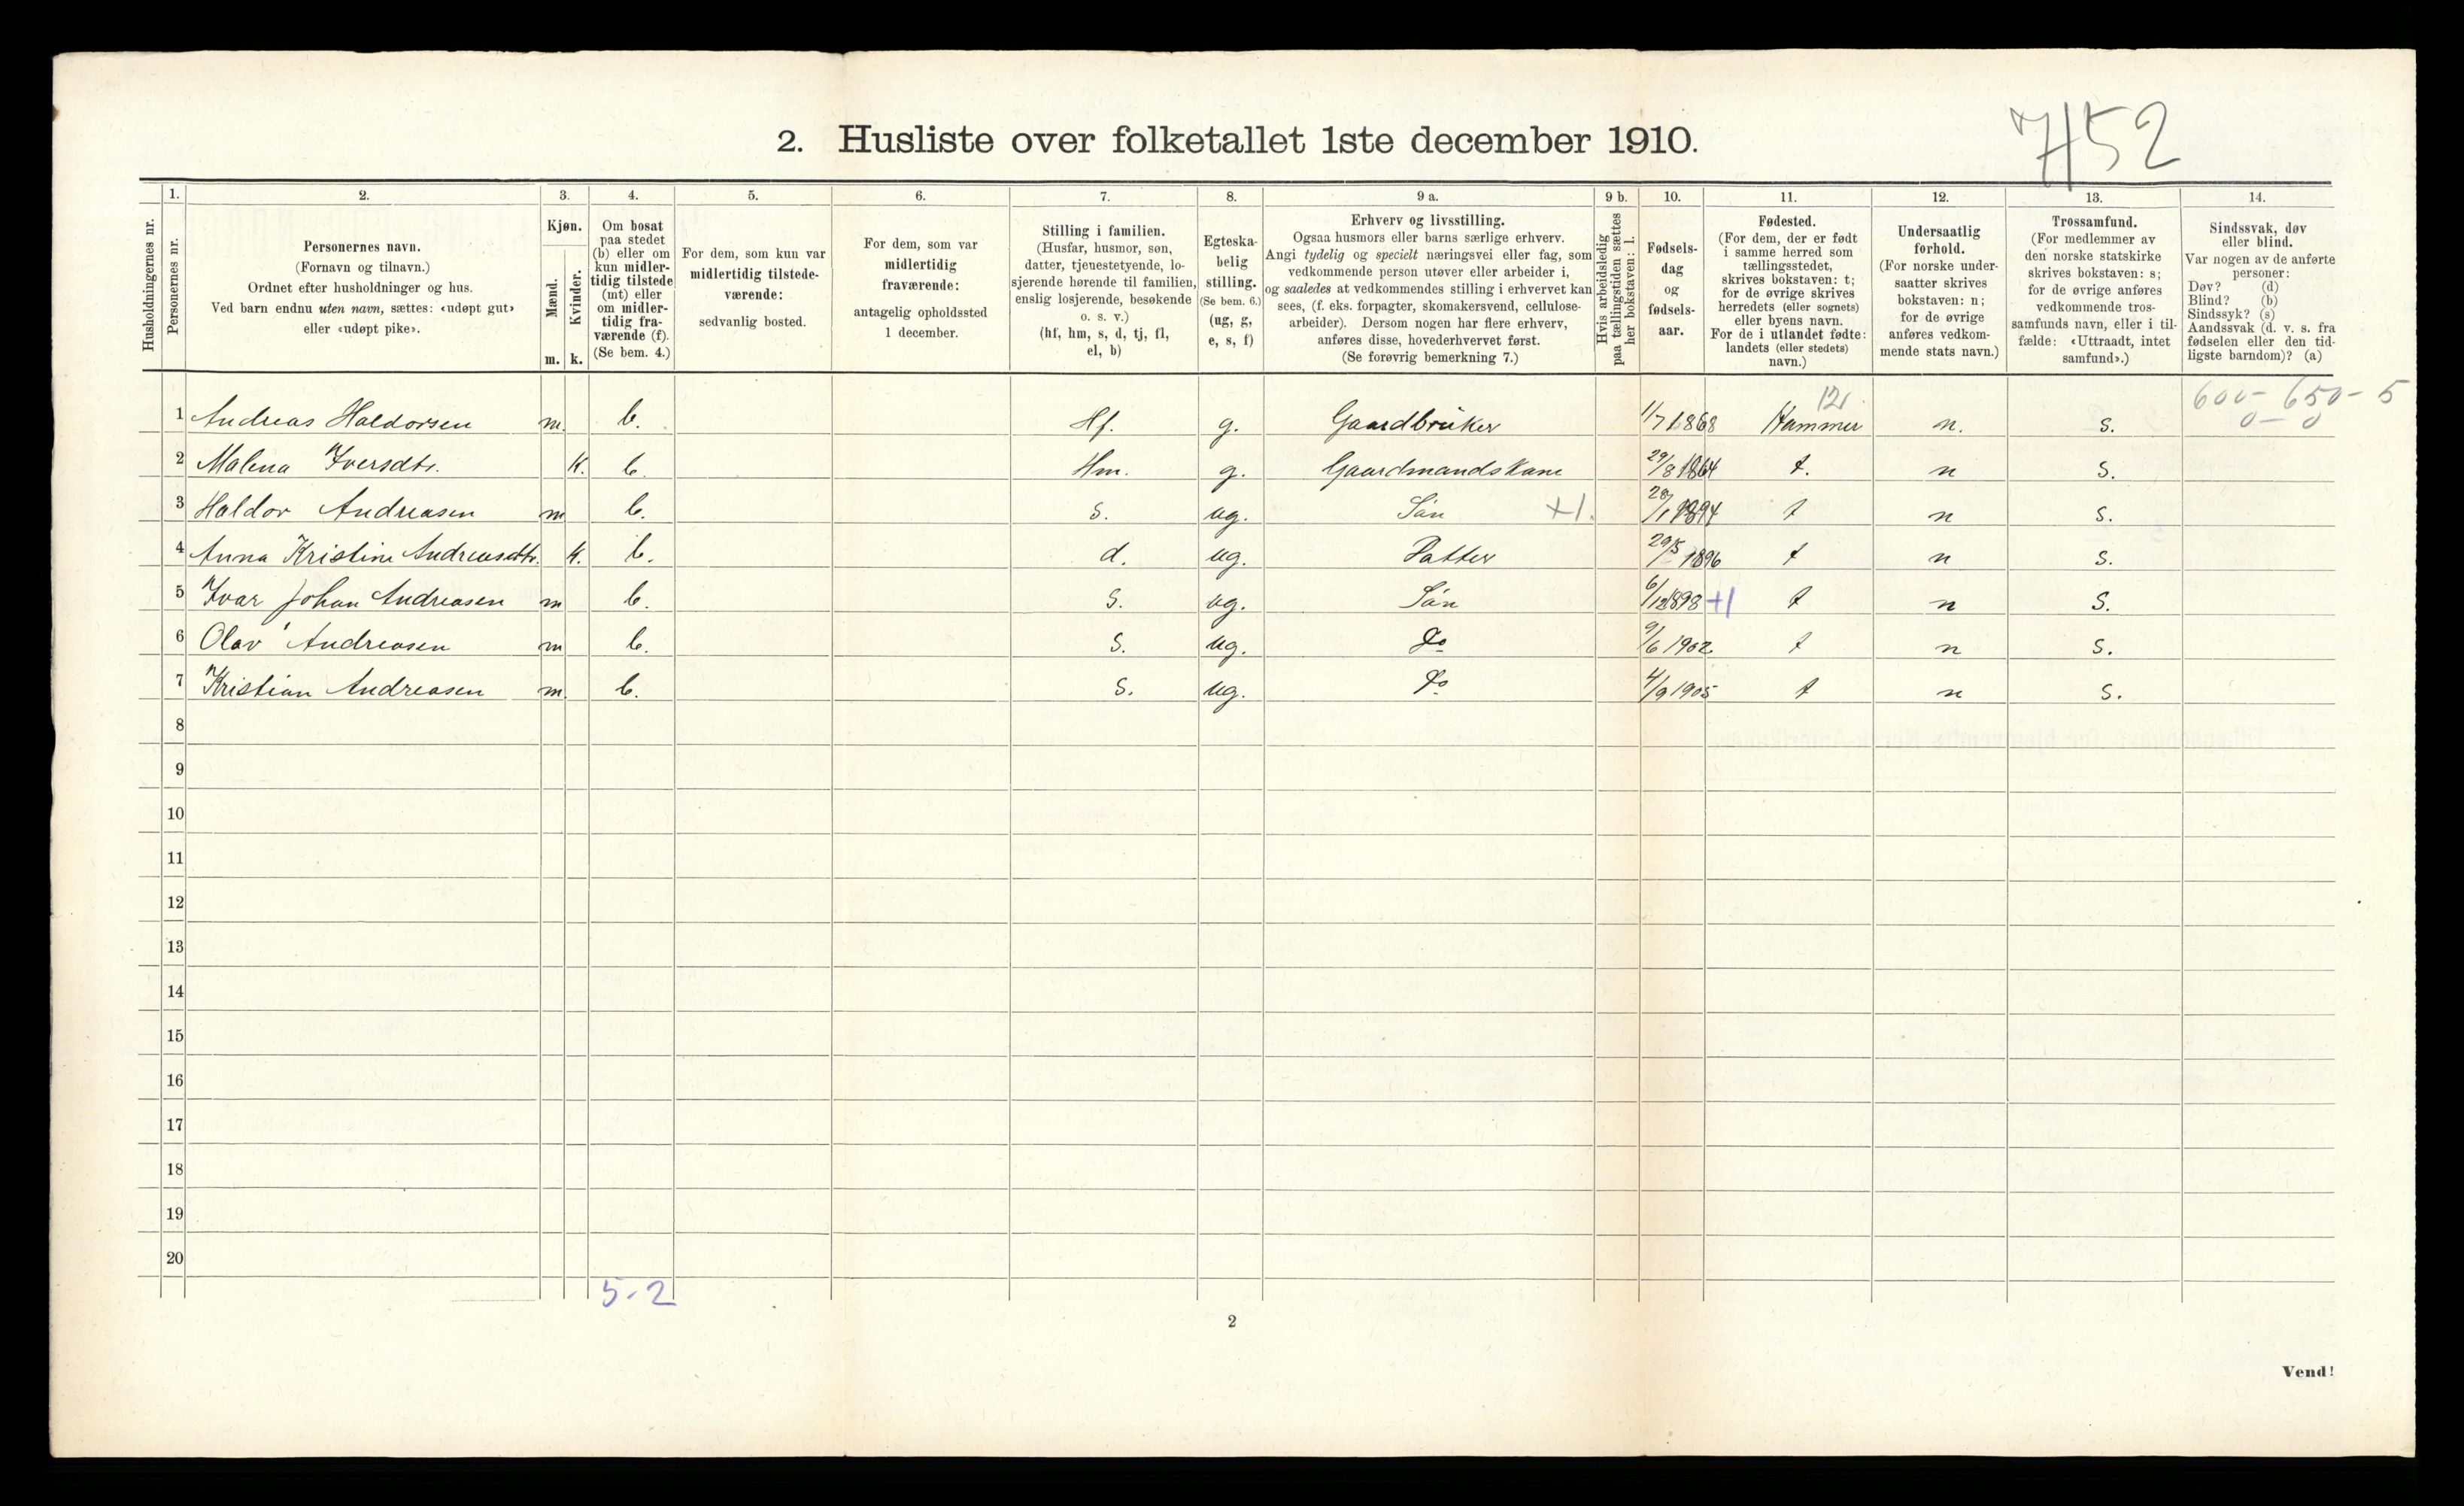 7/52
2. Husliste over folketallet 1ste december 1910.
Husholdningernes nr.
1.
Personernes nr.
2.
Personernes navn.
(Fornavn og tilnavn.)
Ordnet efter husholdninger og hus.
Ved barn endnu uten navn, sættes: «udøpt gut»
eller «udøpt pike».
3.
Kjøn.
Mænd.
m.
Kvinder.
k.
4.
Om bosat
paa stedet
(b) eller om
kun midler-
tidig tilstede
(mt) eller
om midler-
tidig fra-
værende (f).
(Se bem. 4.)
5.
For dem, som kun var
midlertidig tilstede-
værende:
sedvanlig bosted.
6.
For dem, som var
midlertidig
fraværende:
antagelig opholdssted
1 december.
7.
Stilling i familien.
(Husfar, husmor, søn,
datter, tjenestetyende, lo-
sjerende hørende til familien,
enslig losjerende, besøkende
o. s. v.)
(hf, hm, s, d, tj, fl,
el, b)
8.
Egteska-
belig
stilling.
(Se bem. 6.)
(ug, g,
e, s, f)
9 a.
Erhverv og livsstilling.
Ogsaa husmors eller barns særlige erhverv.
Angi tydelig og specielt næringsvei eller fag, som
vedkommende person utøver eller arbeider i,
og saaledes at vedkommendes stilling i erhvervet kan
sees, (f. eks. forpagter, skomakersvend, cellulose-
arbeider). Dersom nogen har flere erhverv,
anføres disse, hovederhvervet først.
(Se forøvrig bemerkning 7.)
9 b.
Hvis arbeidsledig
paa tællingstiden sættes
her bokstaven: l.
10.
Fødsels-
dag
og
fødsels-
aar.
11.
Fødested.
(For dem, der er født
i samme herred som
tællingsstedet,
skrives bokstaven: t;
for de øvrige skrives
herredets (eller sognets)
eller byens navn.
For de i utlandet fødte:
landets (eller stedets)
navn.)
12.
Undersaatlig
forhold.
(For norske under-
saatter skrives
bokstaven: n;
for de øvrige
anføres vedkom-
mende stats navn.)
13.
Trossamfund.
(For medlemmer av
den norske statskirke
skrives bokstaven: s;
for de øvrige anføres
vedkommende tros-
samfunds navn, eller i til-
fælde: «Uttraadt, intet
samfund».)
14.
Sindssvak, døv
eller blind.
Var nogen av de anførte
personer:
Døv? (d)
Blind? (b)
Sindssyk? (s)
Aandssvak (d. v. s. fra
fødselen eller den tid-
ligste barndom)? (a)
12 600 - 650 - 5
0 - 0
1 Andreas Haldorsen m. b. Hf. g. Gaardbruker 1/7 1868 Hammer n. s.
2 Malena Iversdtr. K. b. Hm. g. Gaardmandskone 29/8 1864 t. n s.
3 Haldor Andreasen m b. s. ug. Søn +1. 28/1 1894 t n s.
4 Anna Kristine Andreasdtr. K. b. d. ug. Datter 29/5 1896 t n s.
5 Ivar Johan Andreasen m b. s. ug. Søn 6/12 1898 +1 t n s.
6 Olav Andreasen m b. s. ug. Do 9/6 1902 t n s.
7 Kristian Andreasen m. b. s. ug. Do 4/9 1905 t n s.
8
9
10
11
12
13
14
15
16
17
18
19
20
5-2
2
Vend!